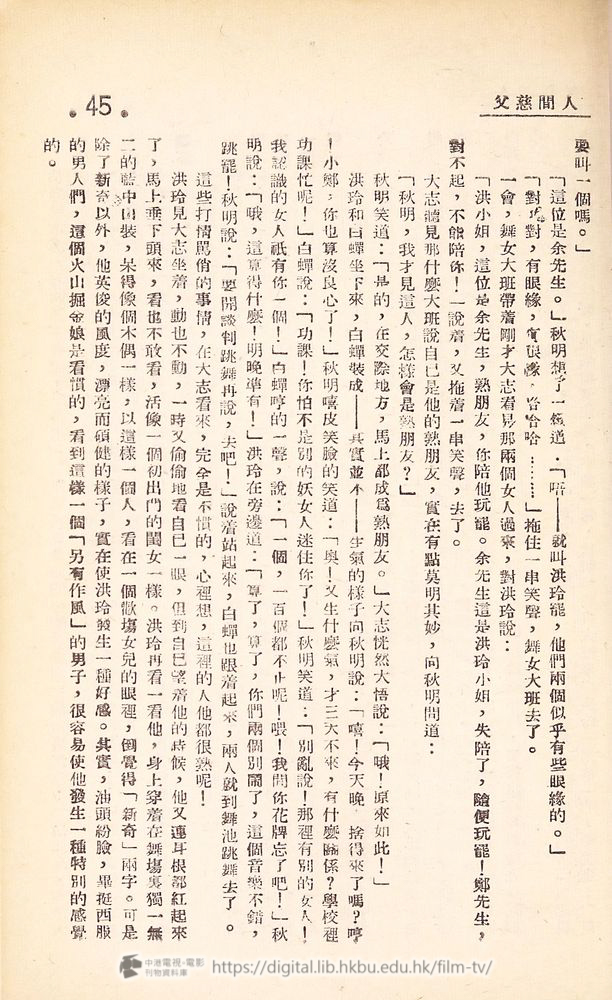 人間慈父
·45·
要叫一個嗎。」
「這位是余先生。」秋明想了一會道：「唔——就叫洪玲罷，他們兩個似乎有些眼緣的。」
「對對對，有眼緣，有眼緣，哈哈哈………」拖住一串笑聲，舞女大班去了。
一會，舞女大班帶着剛才大志看見那兩個女人過來，對洪玲說：
「洪小姐，這位是余先生，熟朋友，你陪他玩罷。余先生這是洪玲小姐，失陪了，隨便玩罷！鄭先生，
對不起，不能陪你！一說着，又拖着一串笑聲，去了。
大志聽見那什麼大班說自己是他的熟朋友，實在有點莫明其妙，向秋明問道：
「秋明，我才見這人，怎樣會是熟朋友？」
秋明笑道：「是的，在交際地方，馬上都成爲熟朋友。」大志恍然大悟說：「哦！原來如此！」
洪玲和白蟬坐下來，白蟬裝成——其實並不——生氣的樣子向秋明說：「嘻！今天晚 捨得來了嗎？哼
！小鄭，你也算沒良心了！」秋明嘻皮笑臉的笑道：「輿！又生什麼氣，才三天不來，有什麼關係？學校裡
功課忙呢！」白蟬說：「功課！你怕不是別的妖女人迷住你了！」秋明笑道：「別亂說！那裡有別的女人！
我認識的女人祇有你一個！」白蟬哼的一聲，說：「一個，一百個都不止呢！喂！我問你花牌忘了吧！」秋
明說：「哦，這算得什麼！明晚準有！」洪玲在旁邊道：「算了，算了，你們兩個別鬧了，這個音樂不錯，
跳罷！秋明說：「要開談判跳舞再說，去吧！」說着站起來，白蟬也跟着起來，兩人就到舞池跳舞去了。
這些打情罵俏的事情，在大志看來，完全是不慣的，心裡想，這裡的人他都很熟呢！
洪玲見大志坐着，動也不動，一時又偷偷地看自己一眼，但到自己望着他的時候，他又連耳根都紅起來
了，馬上垂下頭來，看也不敢看，活像一個初出門的閨女一樣。洪玲再看一看他，身上穿着在舞場裏獨一無
二的藍中国裝，呆得像個木偶一樣，以這樣一個人，看在一個歡塲女兒的眼裡，倒覺得「新奇」兩字。可是
除了新奇以外，他英俊的風度，漂亮而碩健的樣子，實在使洪玲發生一種好感。其實，油頭紛臉，畢挺西服
的男人們，這個火山掘金娘是看慣的，看到這樣一個「另有作風」的男子，很容易使他發生一種特別的感覺
的。
中港電視·電影
刊物資料庫
https://digital.lib.hkbu.edu.hk/film-tv/